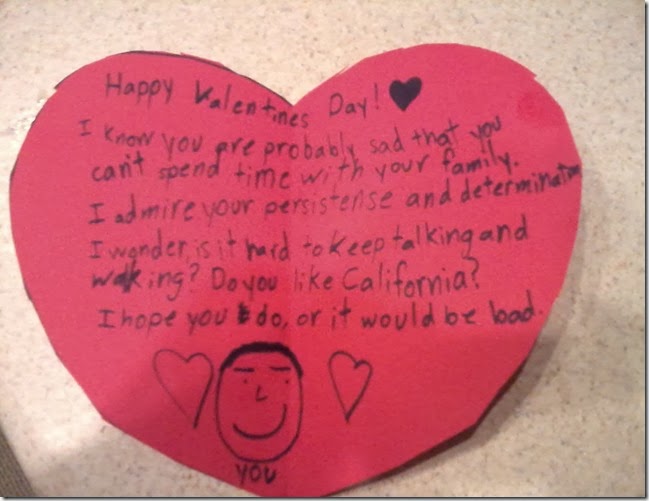 Happy Valentines Day! ♥
I know you are probably sad that you
can't spend time with your family.
I admire your persistense and determination
I wonder, is it hard to keep talking and
walking? Do you like California?
I hope you do, or it would be bad.
YOU